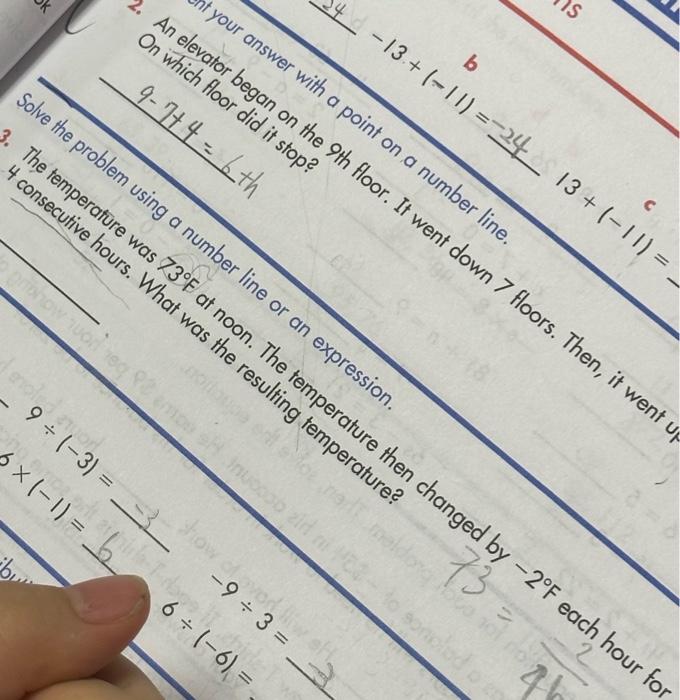 ns
ok
24 -13 + (-11) = -24 13 + (-11) =
b
c
ent your answer with a point on a number line.
2.
An elevator began on the 9th floor. It went down 7 floors. Then, it went up
On which floor did it stop?
9-7+4=6th
Solve the problem using a number line or an expression.
3.
The temperature was 73°F at noon. The temperature then changed by -2°F each hour for
4 consecutive hours. What was the resulting temperature?
73 = -2
9 ÷ (-3) = -3 -9 ÷ 3 = -3
6 × (-1) = 6 6 ÷ (-6) =